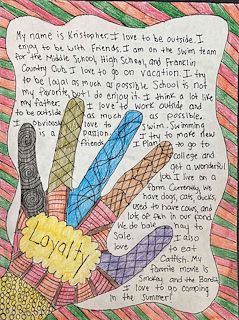 My name is Kristopher. I love to be outside. I
enjoy to be with Friends. I am on the swim team
for the Middle School, High School, and Franklin
Country Club. I love to go on vacation. I try
to be loyal as much as possible. School is not
my favorite, but I do enjoy it. I think a lot like
my father. I love to work outside and
to be outside as much as possible.
Obviously love to swim. Swimming
is a passion. I try to make new
friends. I plan to go to
college and
get a wonderful
job. I live on a
farm. Currently, we
have dogs, cats, ducks,
used to have cows, and
lots of fish in our pond.
We do bake hay to
Sale. I also
love to eat
Catfish. My
favorite movie is
Smokey and the Bandit.
I love to go camping
in the summer!
Loyalty